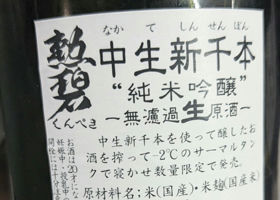 勲碧
くんぺき
なかてしんせんぼん
中生新千本
“純米吟醸”
－無濾過生原酒－
中生新千本を使って醸したお
酒を搾って－2℃のサーマルタン
クで寝かせ数量限定で発売。
原材料名；米(国産)・米麹(国産米)
お酒は20才にな
妊娠中・授乳中
開栓には十分